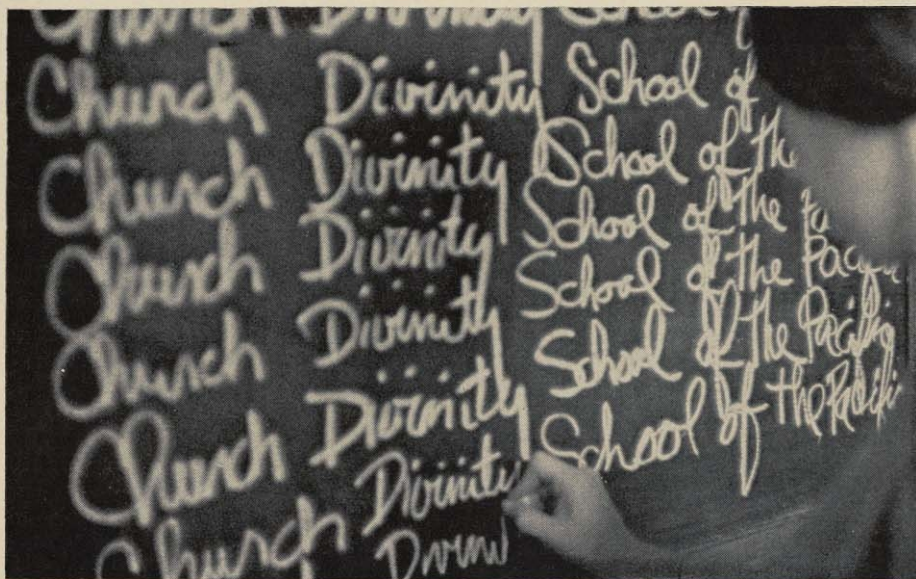 Church Divinity School
Church Divinity School of
Church Divinity School of the
Church Divinity School of the Pa
Church Divinity School of the Pacific
Church Divinity School of the Pacific
Church Divinity School of the Pacific
Divini